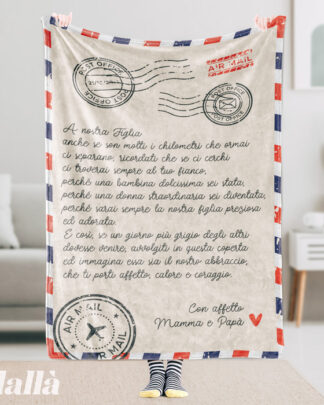 POST OFFICE
POST OFFICE
AIR MAIL
A nostra Figlia
anche se son molti i chilometri che ormai
ci separano, ricordati che se ci cerchi
ci troverai sempre al tuo fianco,
perché una bambina dolcissima sei stata,
perché una donna straordinaria sei diventata,
perché sarai sempre la nostra figlia preziosa
ed adorata.
E così, se un giorno più grigio degli altri
dovesse venire, avvolgiti in questa coperta
ed immagina essa sia il nostro abbraccio,
che ti porti affetto, calore e coraggio.
Con affetto
Mamma e Papà
AIR MAIL
AIR MAIL
lallà